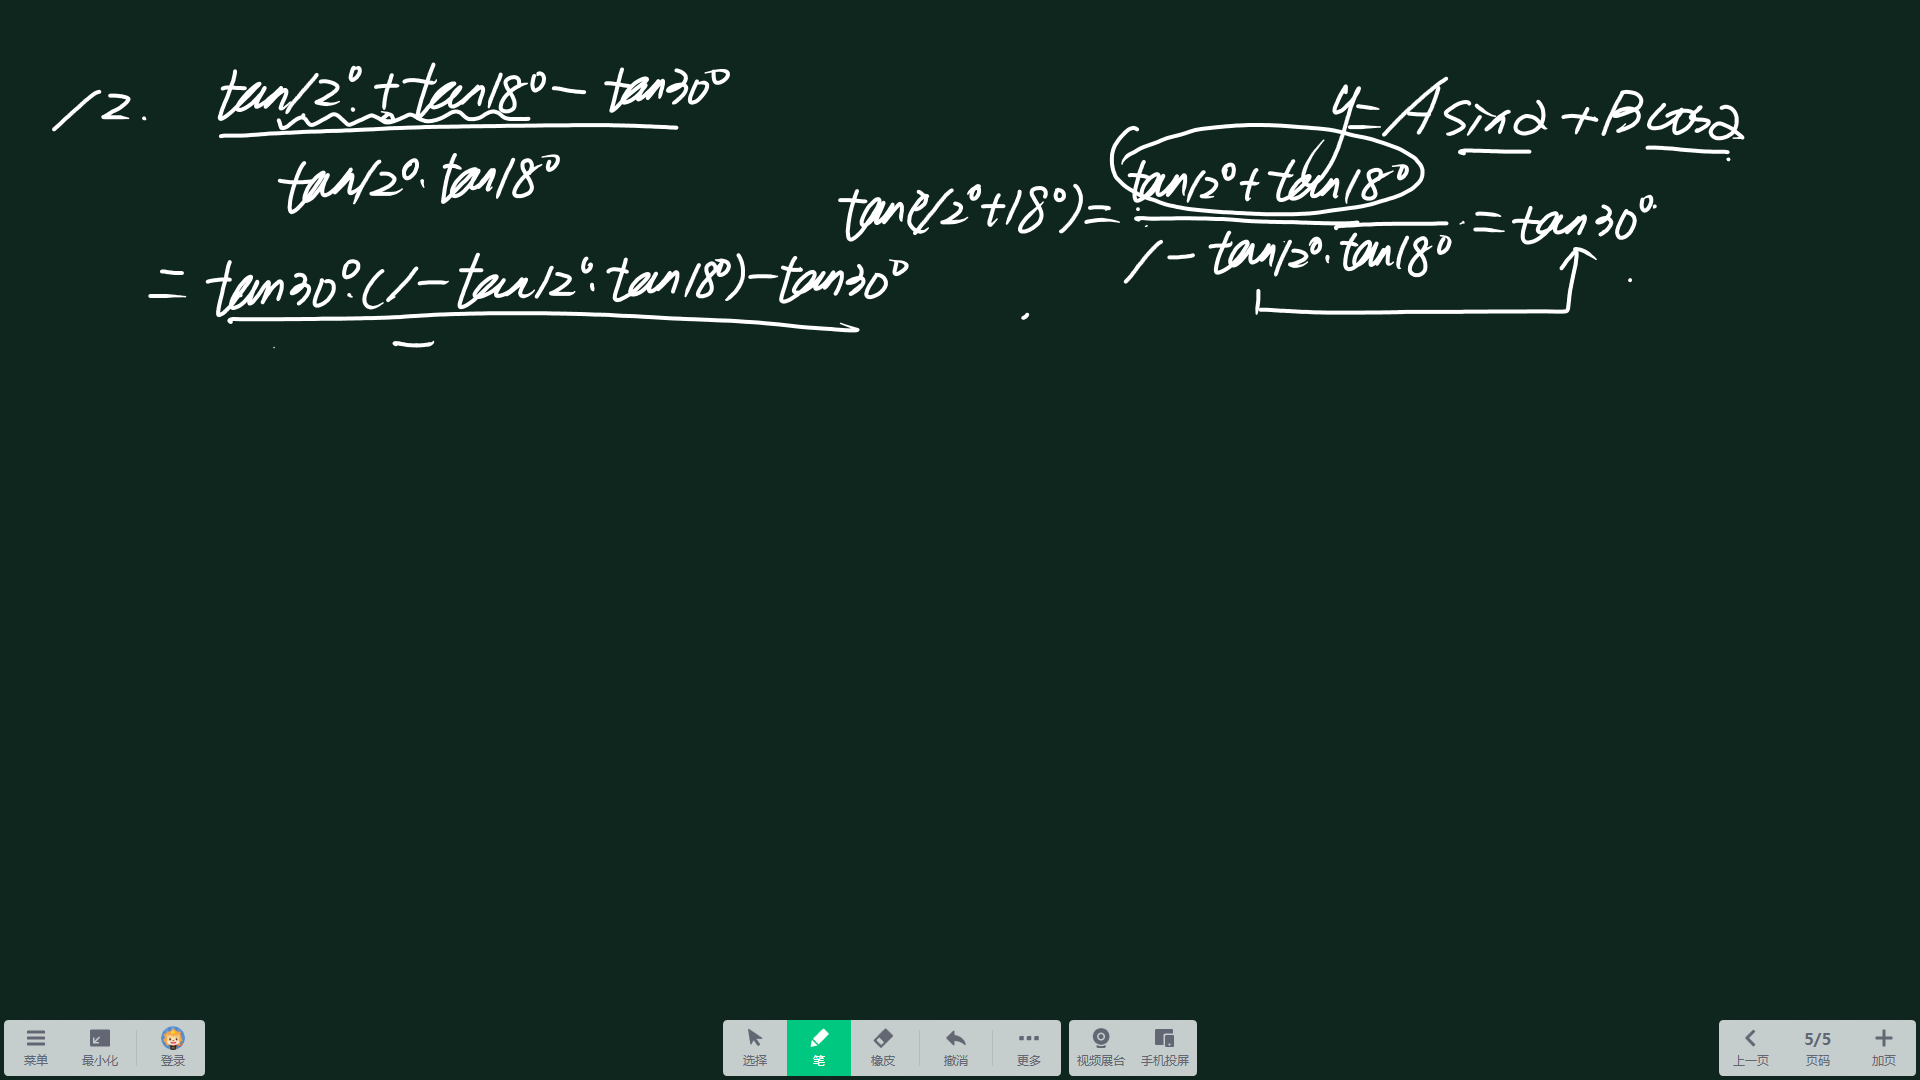 12. tan12°+tan18°-tan30°
tan12°·tan18°
=tan30°·(1-tan12°·tan18°)-tan30°
y=Asinα+Bcosα
tan(12°+18°)=
tan12°+tan18°
1-tan12°·tan18°
=tan30°
菜单 最小化 登录
选择 笔 橡皮 撤消 更多
视频展台 手机投屏
5/5
上一页 页码 加页